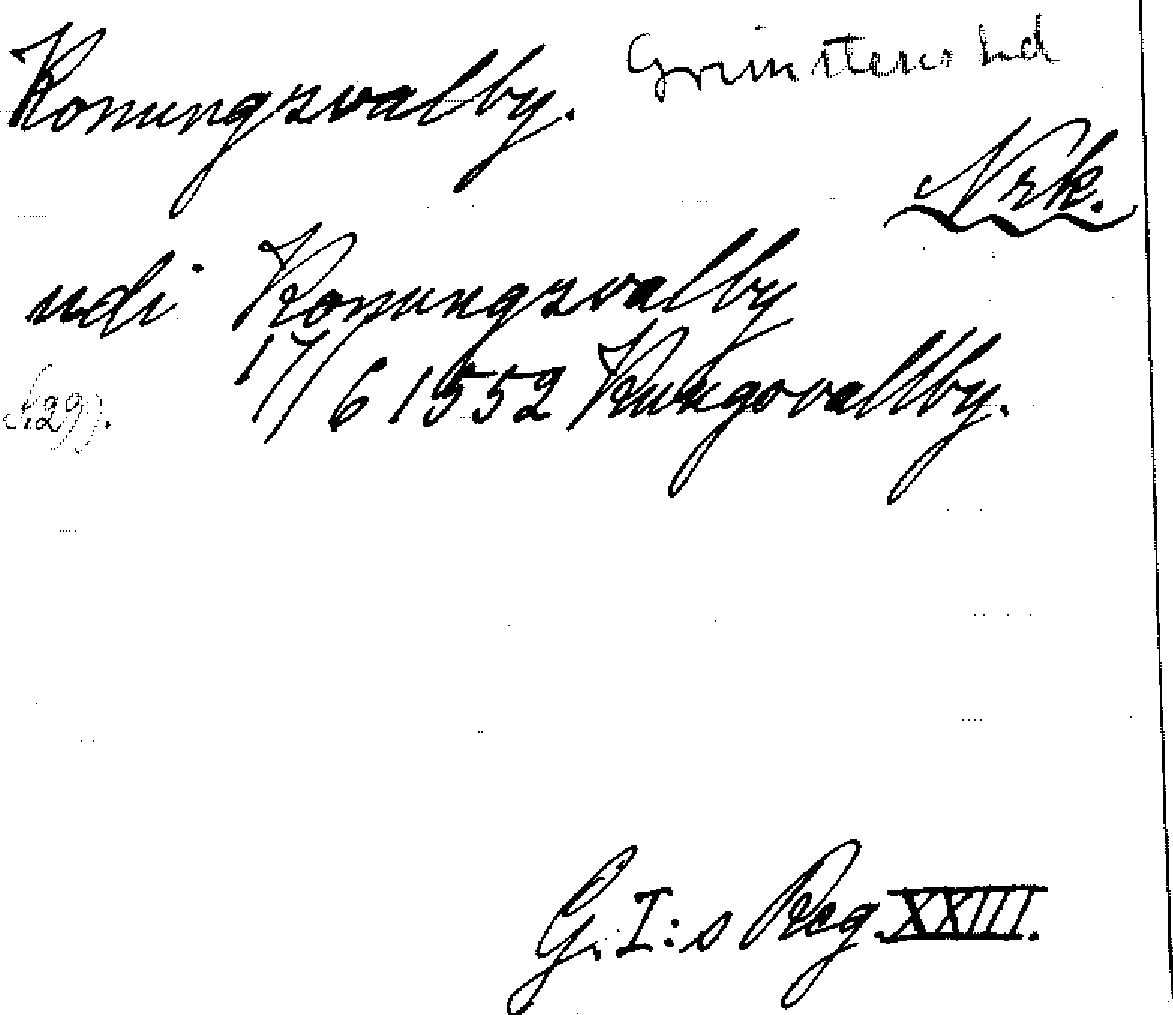 Konungsvalby. Grimstens hd
Nrk.
udi Konungsvalby
s. 299. 17/6 1552 Kungsvallby.
G. I:s Reg. XXIII.